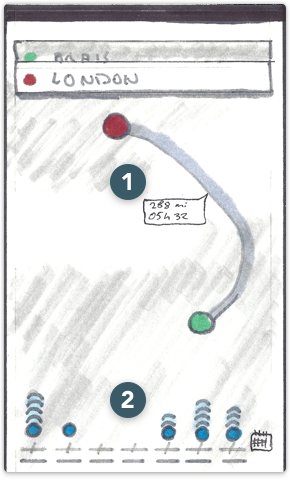 PARIS
LONDON
1
288 mi
05h 32
2